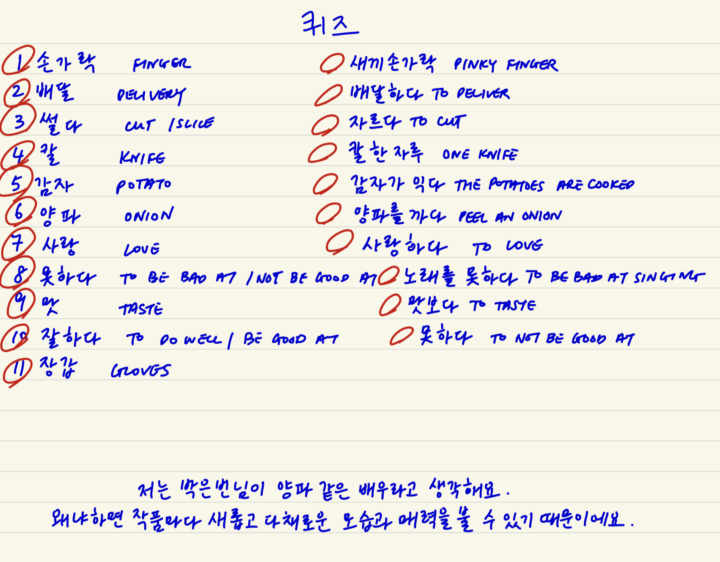 퀴즈
1 손가락 FINGER 새끼손가락 PINKY FINGER
2 배달 DELIVERY 배달하다 TO DELIVER
3 썰다 CUT / SLICE 자르다 TO CUT
4 칼 KNIFE 칼 한 자루 ONE KNIFE
5 감자 POTATO 감자가 익다 THE POTATOES ARE COOKED
6 양파 ONION 양파를 까다 PEEL AN ONION
7 사랑 LOVE 사랑하다 TO LOVE
8 못하다 TO BE BAD AT / NOT BE GOOD AT 노래를 못하다 TO BE BAD AT SINGING
9 맛 TASTE 맛보다 TO TASTE
10 잘하다 TO DO WELL / BE GOOD AT 못하다 TO NOT BE GOOD AT
11 장갑 GLOVES
저는 박은빈님이 양파 같은 배우라고 생각해요.
왜냐하면 작품마다 새롭고 다채로운 모습과 매력을 볼 수 있기 때문이에요.